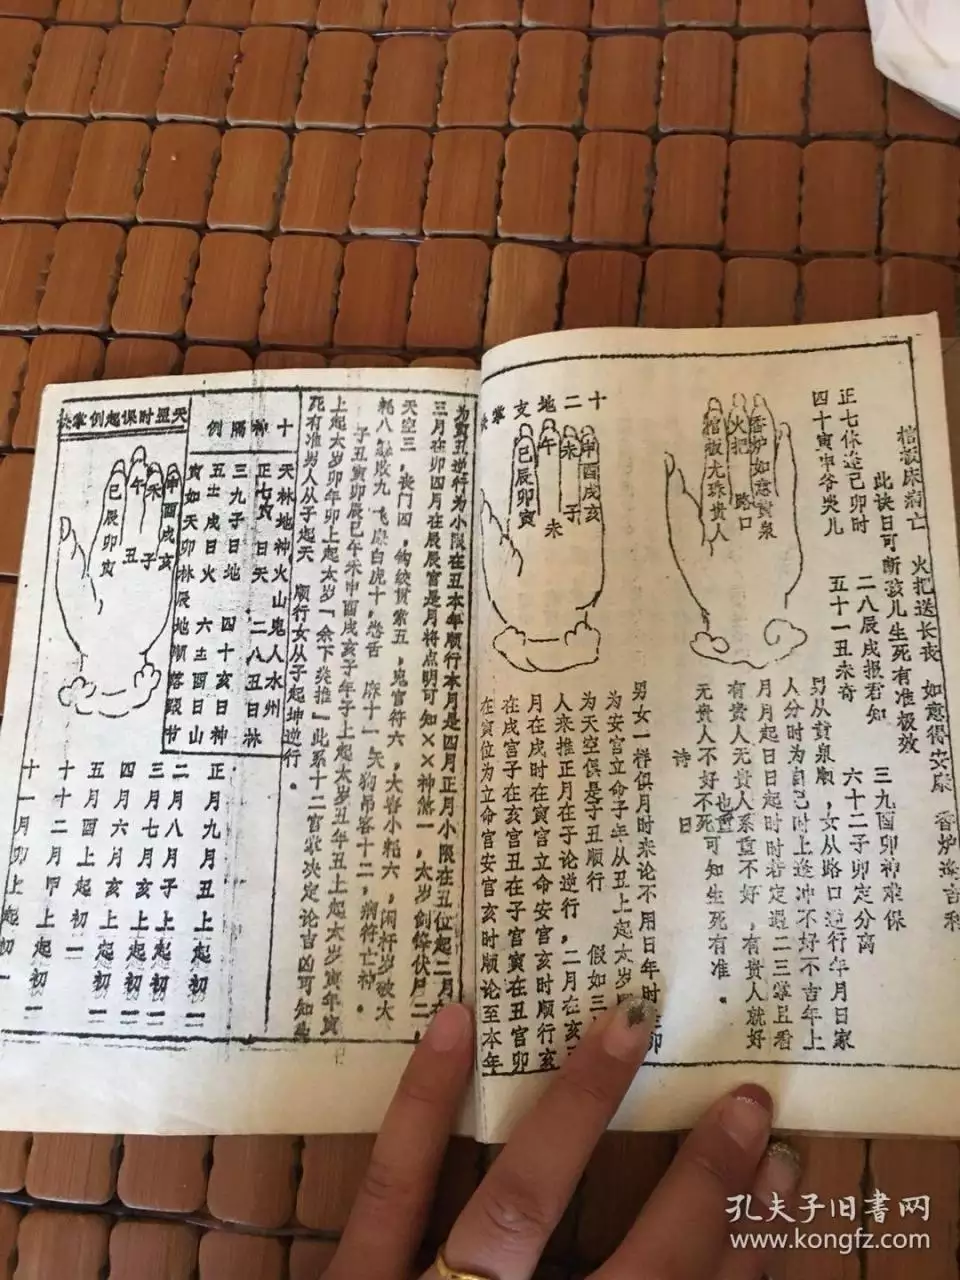 棺板床病亡 火把送长丧 如意得安康 香炉逢吉利
此诀日可断孩儿生死有准极效
正七休逢己卯时 二八辰戌报君知 三九酉卯神难保
四十寅申爷哭儿 五十一丑未奇 六十二子卯定分离
香炉如意黄泉
火把 路口
棺板尤珠贵人
男从黄泉顺,女从路口逆行年月日家
人分时为自己时上逢冲不好不吉年上
月月起日日起时时若定遇二三掌且看
有贵人无贵人系重不好,有贵人就好
无贵人不好不死可知生死有准.
也重
诗日
十二地支掌
申酉戌亥
未
午
巳辰卯寅
子
未
男女一样俱月时来论不用日年时
为安宫立命子年从丑上起太岁
为天空俱是子丑顺行 假如三
人来推正月在子论逆行,二月在亥
月在戌时在寅宫立命安宫亥时顺行亥
在戌宫子在亥宫丑在子宫寅在丑宫卯
在寅位为立命宫安宫亥时顺论至本年
为寅丑逆行为小限在丑本年顺行本月是四月正月小限在丑位起二月在
三月在卯四月在辰辰宫是月将点明可知××神煞一,太岁剑锋伏尸二,
天空三,丧门四,钩绞贯索五,鬼官符六,大耗小耗六,阑杆岁破大
耗八 败九 飞廉白虎十,卷舌 十一 天狗吊客十二,病符亡神.
子丑寅卯辰巳午未申酉戌亥子年子上起太岁丑年丑上起太岁寅年寅
上起太岁卯年卯上起太岁「余下类推」此系十二宫掌决定论吉凶可知生
死有准男人从子起天 顺行女从子起坤逆行.
十神隔例
天林地神火山鬼人水州
正七 日天,二八丑日林
三九子日地 四十亥日神
五 戌日火 六 酉日山
寅如天卯林辰地顺落跟节
天盟时保起例掌
申酉戌亥
未
午
巳辰卯寅
子
丑
正月九月丑上起初一
二月八月子上起初一
三月七月亥上起初一
四月六月亥上起初一
五月酉上起初一
十十二月甲上起初一
十一月卯上起初一
孔夫子旧书网
www.kongfz.com